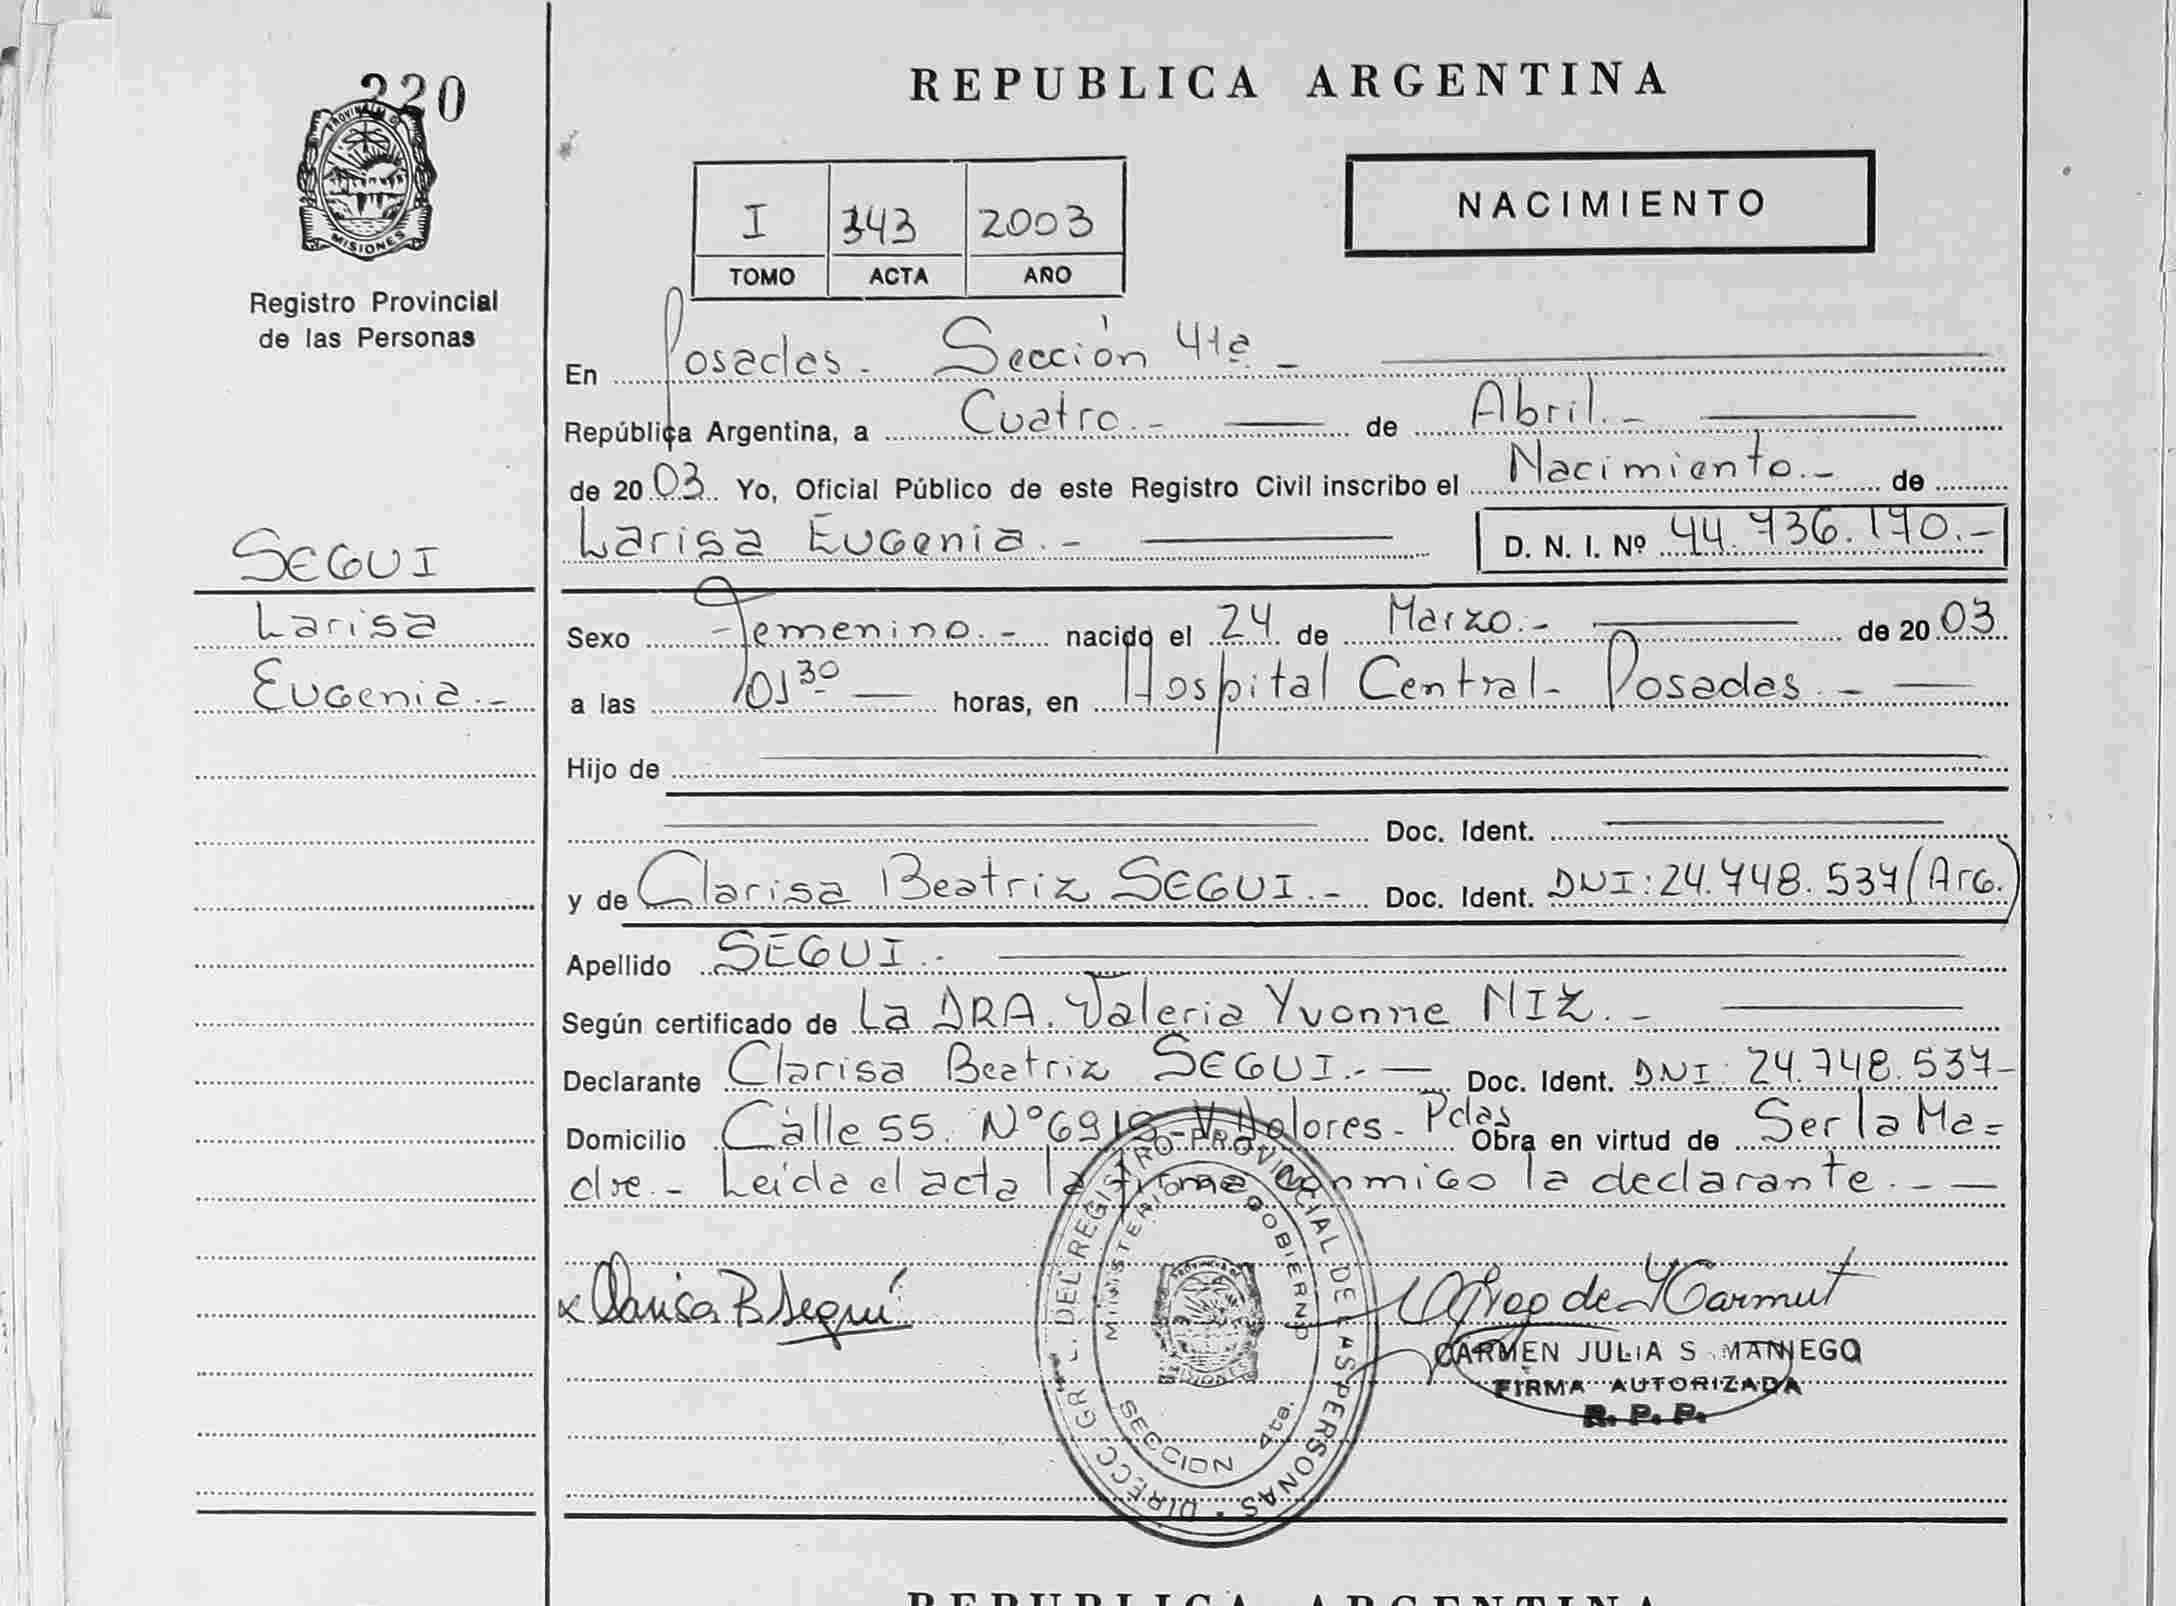 220
PROVINCIA DE
MISIONES
Registro Provincial
de las Personas
SEGUI
Larisa
Eugenia.-
REPUBLICA ARGENTINA
I 343 2003
TOMO ACTA AÑO
NACIMIENTO
En Posadas - Sección 4ta -
República Argentina, a Cuatro.- de Abril.-
de 2003. Yo, Oficial Público de este Registro Civil inscribo el Nacimiento.- de
Larisa Eugenia.- D. N. I. Nº 44.736.170.-
Sexo Femenino.- nacido el 24 de Marzo.- de 2003
a las 01³⁰ horas, en Hospital Central- Posadas.-
Hijo de
Doc. Ident.
y de Clarisa Beatriz SEGUI.- Doc. Ident. DNI: 24.748.537 (Arg.)
Apellido SEGUI.-
Según certificado de La DRA. Valeria Yvonne NIZ.-
Declarante Clarisa Beatriz SEGUI.- Doc. Ident. DNI: 24.748.537-
Domicilio Calle 55. Nº 6919 - V. Dolores - Pdas Obra en virtud de Ser la Ma=
dre.- Leída el acta la firma conmigo la declarante.-
Clarisa B Seguí
CARMEN JULIA S. MANJEGO
FIRMA AUTORIZADA
R. P. P.
DIRECC. GRAL. DEL REGISTRO PROVINCIAL DE LAS PERSONAS
MINISTERIO DE GOBIERNO
SECCION 4ta.
REPUBLICA ARGENTINA